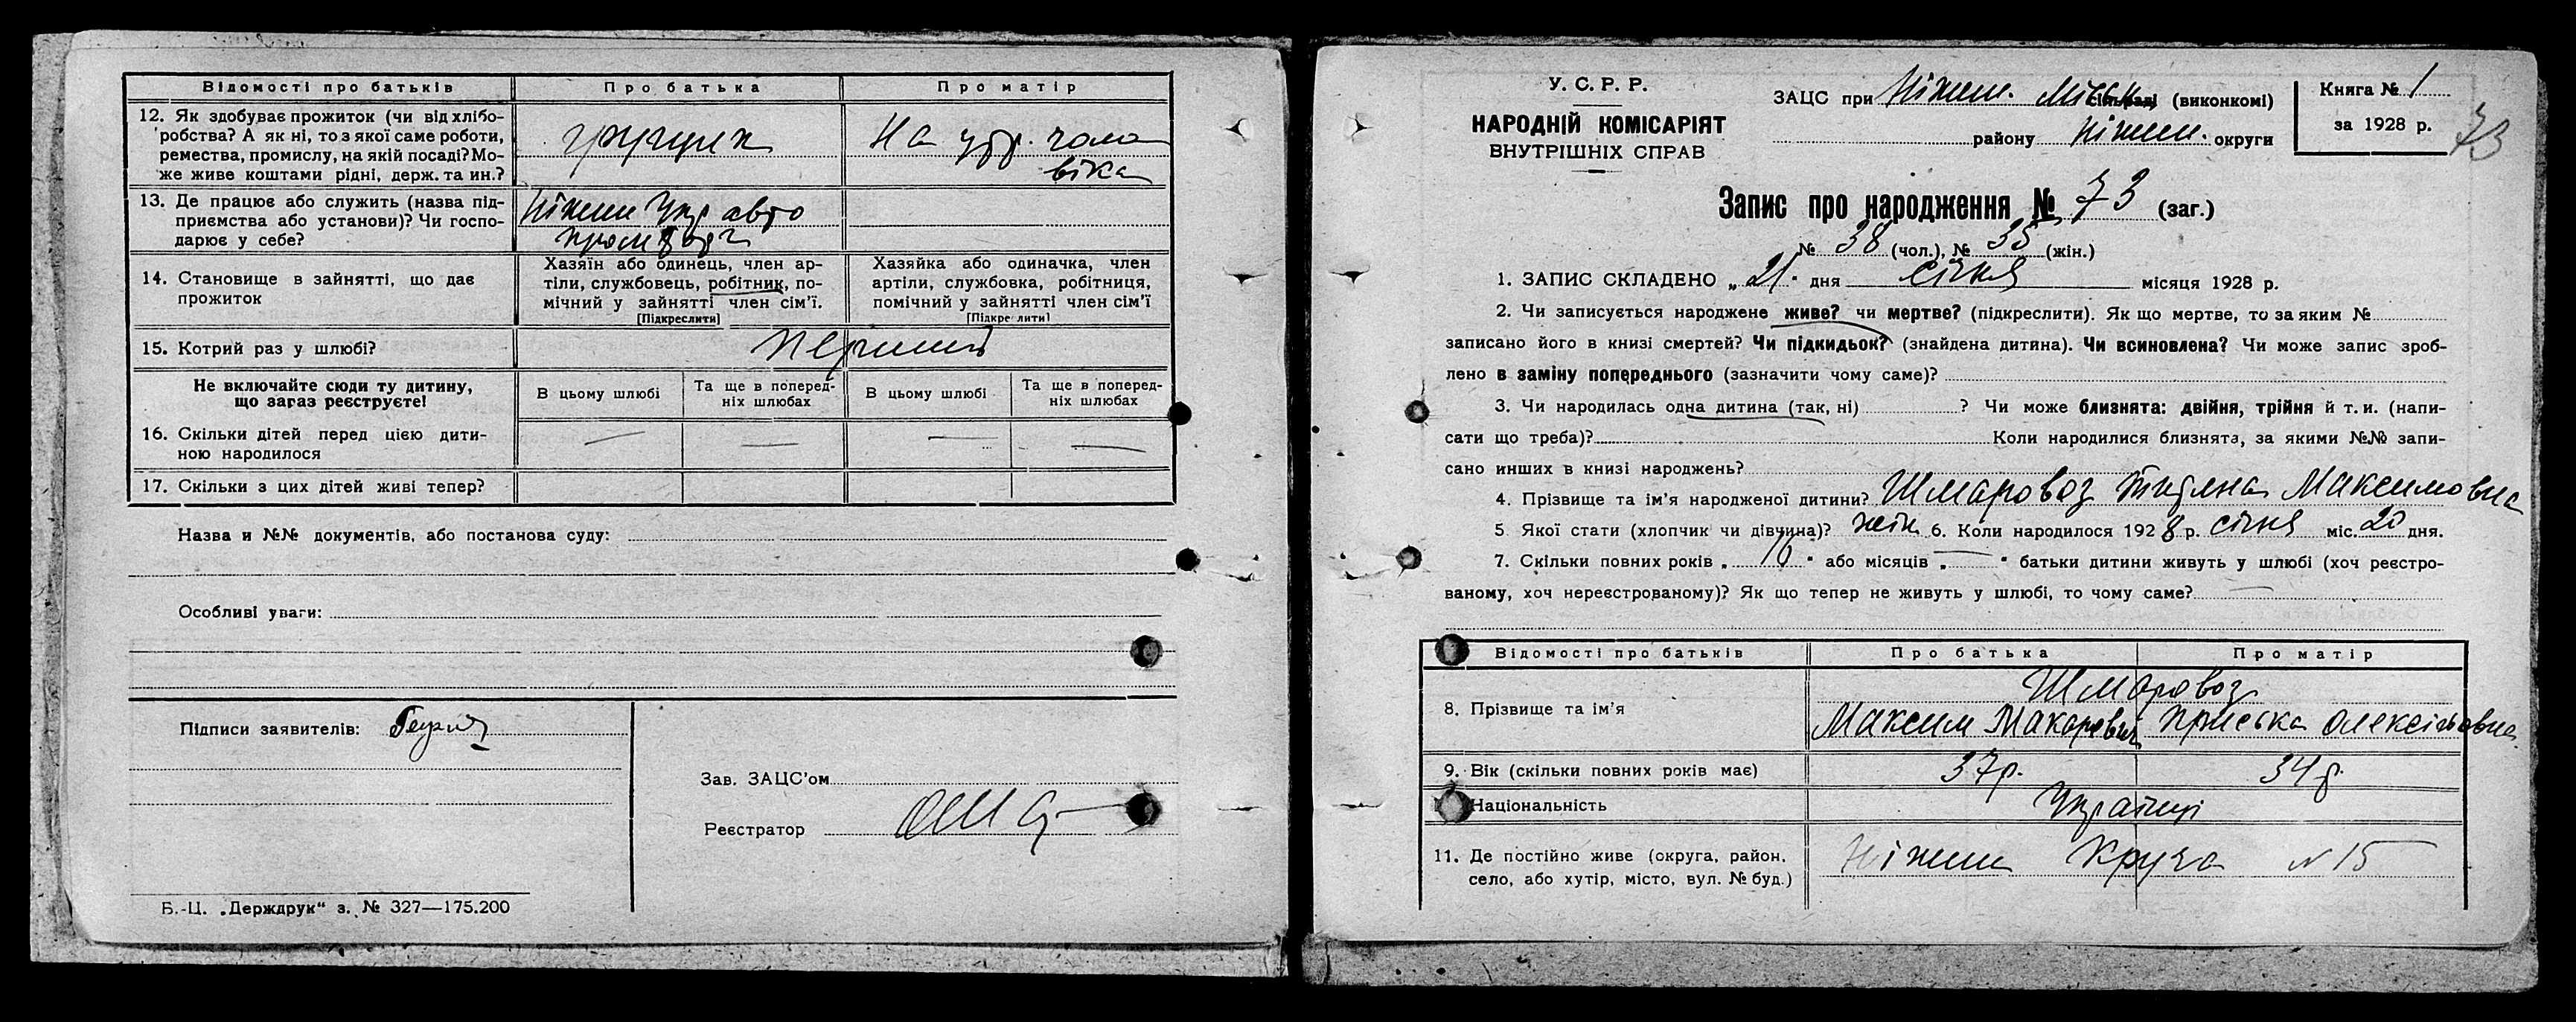 Відомості про батьків Про батька Про матір
12. Як здобуває прожиток (чи від хлібо-
робства? А як ні, то з якої саме роботи,
ремества, промислу, на якій посаді? Мо-
же живе коштами рідні, держ. та ин.?
грузчик
На утр. чоло
віка
13. Де працює або служить (назва під-
приємства або установи)? Чи госпо-
дарює у себе?
Ніжин Укр авто
пром
14. Становище в зайнятті, що дає
прожиток
Хазяїн або одинець, член ар-
тіли, службовець, робітник, по-
мічний у зайнятті член сім'ї.
[Підкреслити]
Хазяйка або одиначка, член
артіли, службовка, робітниця,
помічний у зайнятті член сім'ї
[Підкре лити]
15. Котрий раз у шлюбі? перший
Не включайте сюди ту дитину,
що загаз реєструєте!
В цьому шлюбі
Та ще в поперед-
ніх шлюбах
В цьому шлюбі
Та ще в поперед-
ніх шлюбах
16. Скільки дітей перед цією дити-
ною народилося
— — — —
17. Скільки з цих дітей живі тепер?
Назва и №№ документів, або постанова суду:
Особливі уваги:
Підписи заявителів:
Зав. ЗАЦС'ом
Реєстратор
Б.-Ц. „Держдрук" з. № 327—175.200
У. С. Р. Р.
НАРОДНІЙ КОМІСАРІЯТ
ВНУТРІШНІХ СПРАВ
ЗАЦС при Ніжин. Міськ сільраді (виконкомі)
району Ніжин. округи
Книга № 1
за 1928 р.
73
Запис про народження № 73 (заг.)
№ 38 (чол.), № 35 (жін.)
1. ЗАПИС СКЛАДЕНО „21" дня січня місяця 1928 р.
2. Чи записується народжене живе? чи мертве? (підкреслити). Як що мертве, то за яким №
записано його в книзі смертей? Чи підкидьок? (знайдена дитина). Чи всиновлена? Чи може запис зроб-
лено в заміну попереднього (зазначити чому саме)?
3. Чи народилась одна дитина (так, ні) ? Чи може близнята: двійня, трійня й т. и. (напи-
сати що треба)? Коли народилися близнята, за якими №№ запи-
сано инших в книзі народжень?
4. Прізвище та ім'я народженої дитини? Шмаровоз Тетяна Максимовна
5 Якої стати (хлопчик чи дівчина)? жін 6. Коли народилося 1928 р. січня міс. 20 дня.
7. Скільки повних років „ 16 " або місяців „ — " батьки дитини живуть у шлюбі (хоч реєстро-
ваному, хоч нереєстрованому)? Як що тепер не живуть у шлюбі, то чому саме? —
Відомості про батьків Про батька Про матір
8. Прізвище та ім'я
Шмаровоз
Максим Макарович Приська Олексіївна
9. Вік (скільки повних років має) 37р. 34 р.
Національність Українці
11. Де постійно живе (округа, район,
село, або хутір, місто, вул. № буд.)
Ніжин Круча № 15